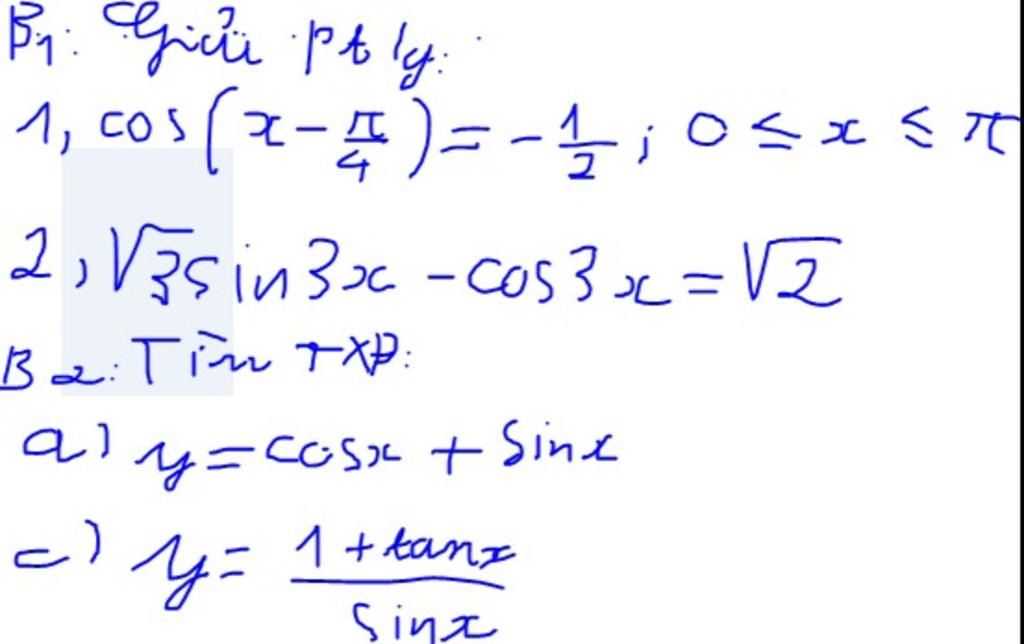 B1: Giải pt ly:
1, cos(x - π/4) = - 1/2 ; 0 ≤ x ≤ π
2, √3 sin3x - cos3x = √2
B2: Tìm TXĐ:
a) y = cosx + sinx
c) y = (1 + tanx)/sinx